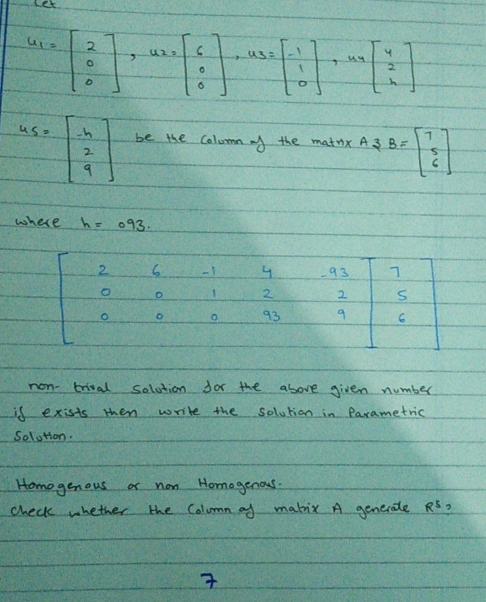 Let
u1 = [2 0 0], u2 = [6 0 0], u3 = [-1 1 0], u4 [4 2 h]
u5 = [-h 2 9] be the Column of the matrix A & B = [7 5 6]
where h = 093.
2 6 -1 4 -93 7
0 0 1 2 2 5
0 0 0 93 9 6
non-trival Solution for the above given number
if exists then write the Solution in Parametric
Solution.
Homogenous or non Homogenous.
Check whether the Column of matrix A generate R5?
7